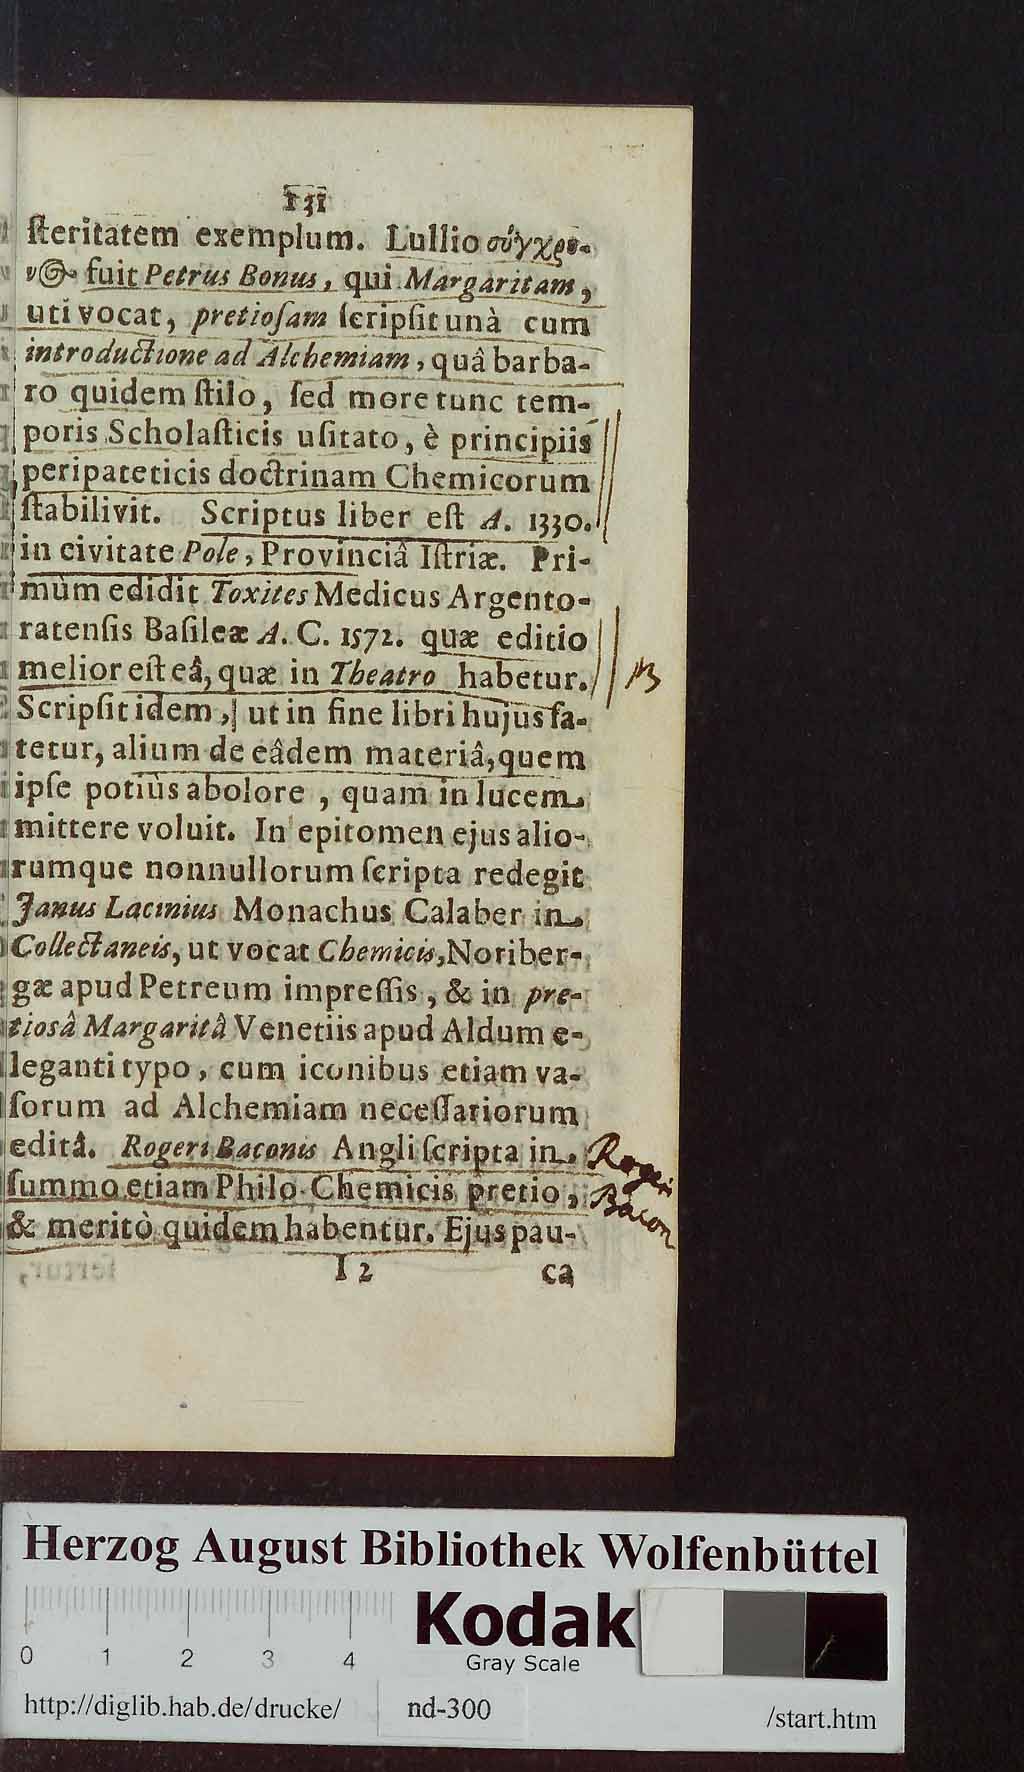 131
ſteritatem exemplum. Lullio σύγχρο-
ν⊙ fuit Petrus Bonus, qui Margaritam,
uti vocat, pretioſam ſcripſit unà cum
introductione ad Alchemiam, quâ barba-
ro quidem ſtilo, ſed more tunc tem-
poris Scholaſticis uſitato, è principiis
peripateticis doctrinam Chemicorum
ſtabilivit. Scriptus liber eſt A. 1330.
in civitate Pole, Provinciâ Iſtriæ. Pri-
mùm edidit Toxites Medicus Argento-
ratenſis Baſileæ A. C. 1572. quæ editio
melior eſt eâ, quæ in Theatro habetur.
Scripſit idem, ut in fine libri hujus fa-
tetur, alium de eâdem materiâ, quem
ipſe potiùs abolore, quam in lucem
mittere voluit. In epitomen ejus alio-
rumque nonnullorum ſcripta redegit
Janus Lacinius Monachus Calaber in
Collectaneis, ut vocat Chemicis, Noriber-
gæ apud Petreum impreſſis, & in pre-
tiosâ Margaritâ Venetiis apud Aldum e-
leganti typo, cum iconibus etiam va-
ſorum ad Alchemiam neceſſariorum
editâ. Rogeri Baconis Angli ſcripta in
ſummo etiam Philo-Chemicis pretio,
& meritò quidem habentur. Ejus pau-
I 2 ca
NB
Rogeri
Bacon
Herzog August Bibliothek Wolfenbüttel
Kodak
Gray Scale
0 1 2 3 4
http://diglib.hab.de/drucke/ nd-300 /start.htm